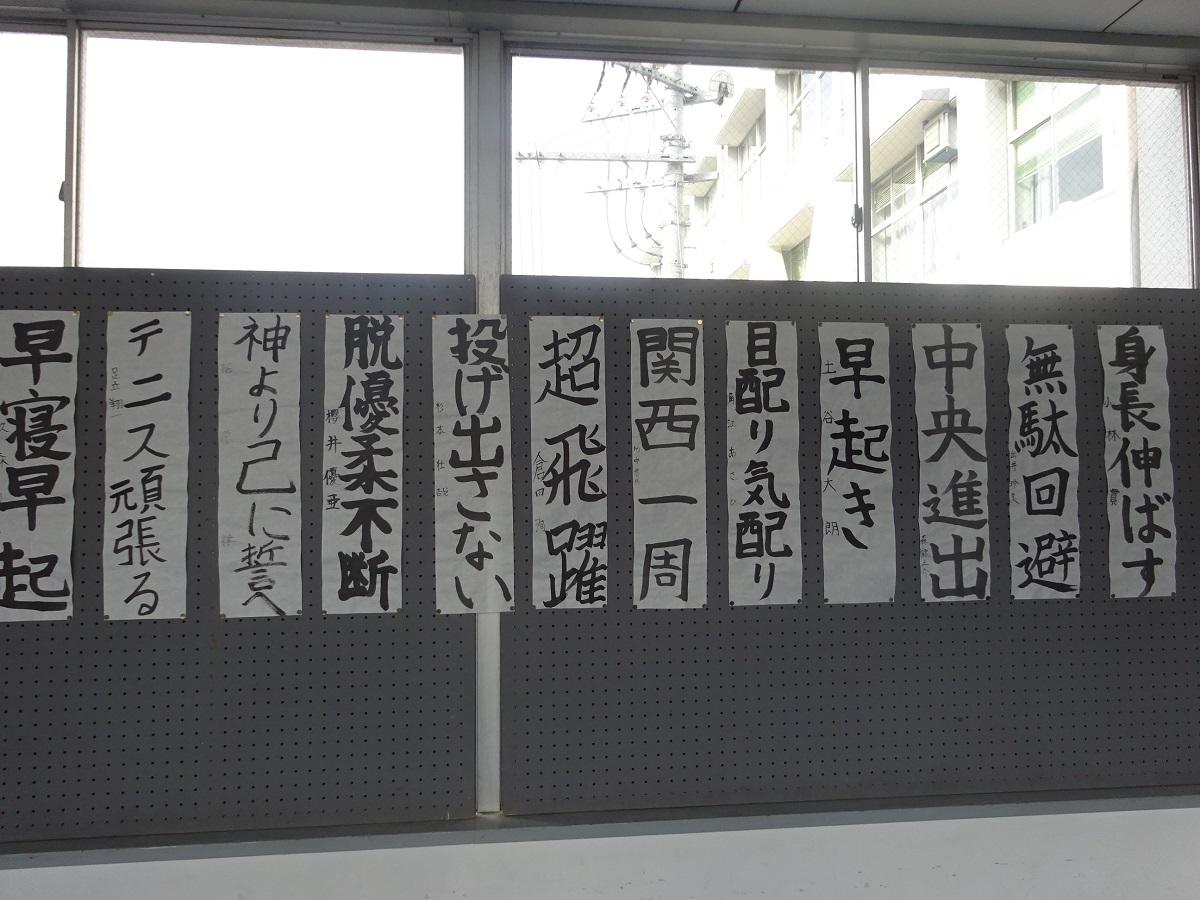 身長伸ばす
小林 寛
無駄回避
中央進出
早起き
土谷大朗
目配り気配り
関西一周
超飛躍
倉田
投げ出さない
杉本壮
脱優柔不断
櫻井優亜
神より己に誓へ
テニス頑張る
足立翔
早寝早起